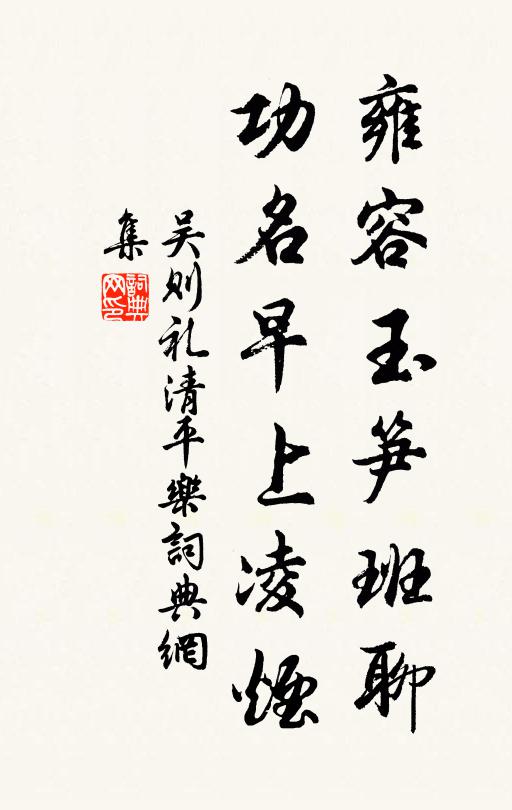 雍容玉笋班聊
功名早上凌煙
吴则礼清平樂詞典網
集
詞典
网印